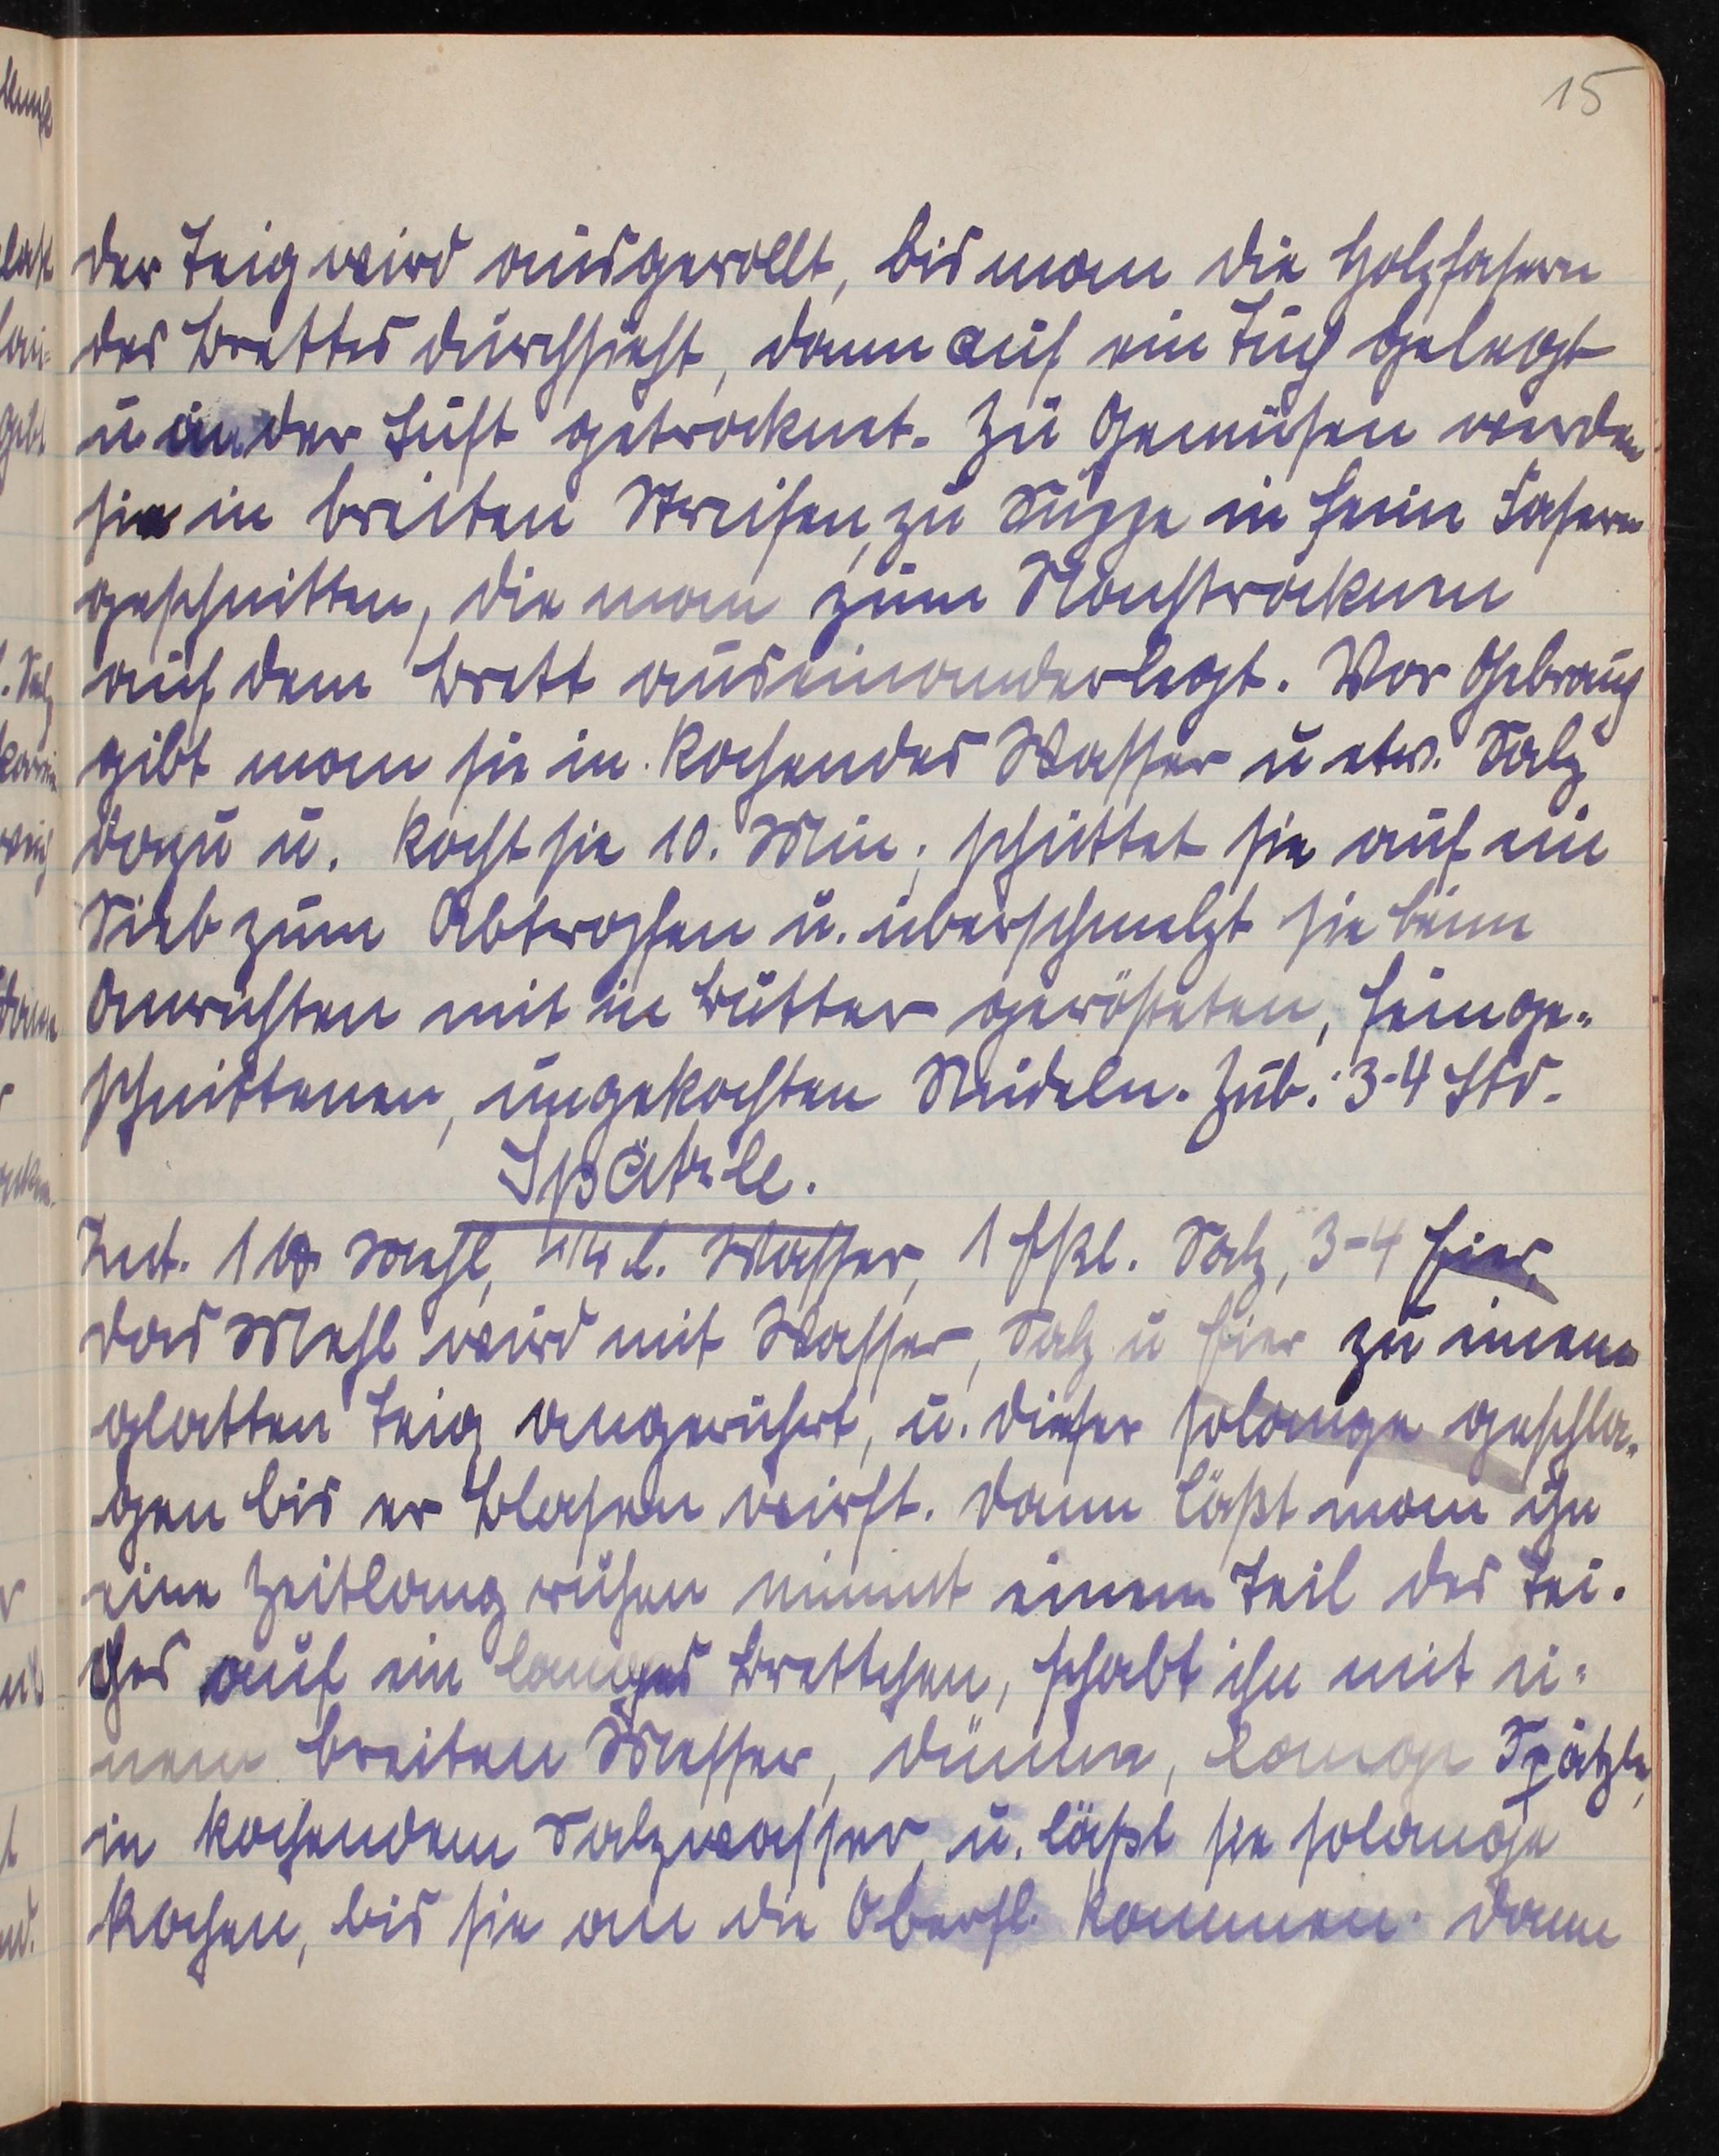 15
der Teig wird ausgerollt, bis man die Holzfasern
des Brettes durchsieht, dann auf ein Tuch gelegt
u an der Luft getrocknet. Zu Gemüsen werden
sie in breiten Streifen, zu Suppe in fein Fasern
geschnitten, die man zum Nachtrocknen
auf dem Brett auseinanderlegt. Vor Gebrauch
gibt man sie in kochendes Wasser u etw. Salz
dazu u. kocht sie 10. Min; schüttet sie auf ein
Sieb zum Abtropfen u. überschmelzt sie beim
Anrichten mit in Butter gerösteten, feinge-
schnittenen, ungekochten Nudeln. Zub.: 3-4 Std.
Spätzle.
Zut. 1 ℔ Mehl, 1/4 l. Wasser, 1 Eßl. Salz, 3-4 Eier,
das Mehl wird mit Wasser, Salz u Eier zu einem
glatten Teig angerührt, u. dieser solange geschla-
gen bis er Blasen wirft. Dann läßt man ihn
eine Zeitlang ruhen nimmt einen Teil des Tei-
ges auf ein langes Brettchen, schabt ihn mit ei-
nem breiten Messer, dünne, lange Spätzle,
in kochendem Salzwasser u. läßt sie solange
kochen, bis sie an die Oberfl. kommen. Dann